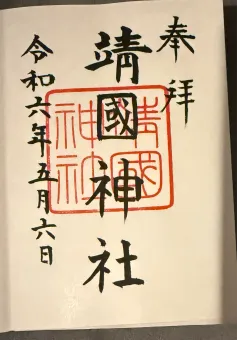 奉拝
靖國神社
靖國神社
令和六年五月六日